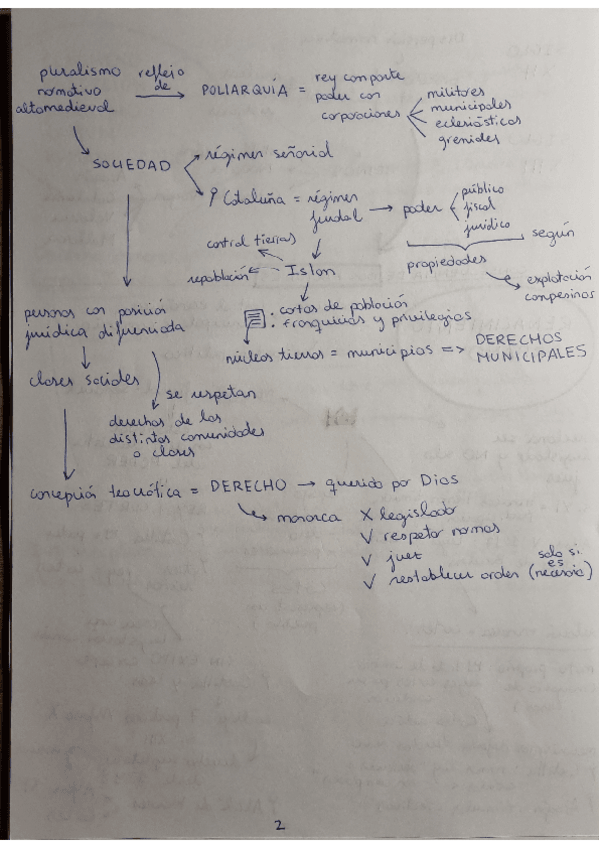 pluralismo
normativo
altomedieval
reflejo
de
POLIARQUÍA =
rey comparte
poder con
corporaciones
militares
municipales
eclesiásticas
gremiales
SOCIEDAD
régimen señorial
Cataluña = régimen
feudal
poder
público
fiscal
jurídico
según
propiedades
explotación
campesinos
control tierras
repoblación
Islam
: cartas de población
franquicias y privilegios
núcleos tierras = municipios => DERECHOS
MUNICIPALES
personas con posición
jurídica diferenciada
clases sociales
se respetan
derechos de las
distintas comunidades
o clases
concepción teocrática = DERECHO → querido por Dios
monarca X legislador
V respetar normas
V juez
V restablecer orden (solo si
es
necesario)
2